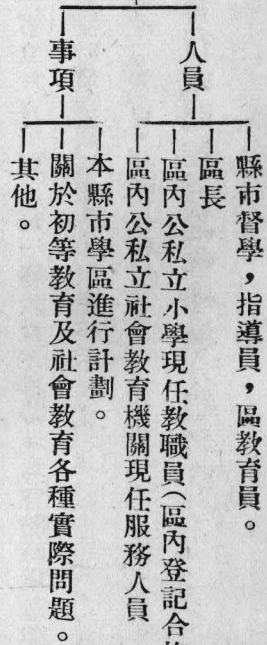 人員
縣市督學，指導員，區教育員。
區長
區內公私立小學現任教職員（區內登記合
區內公私立社會教育機關現任服務人員
事項
本縣市學區進行計劃。
關於初等教育及社會教育各種實際問題。
其他。